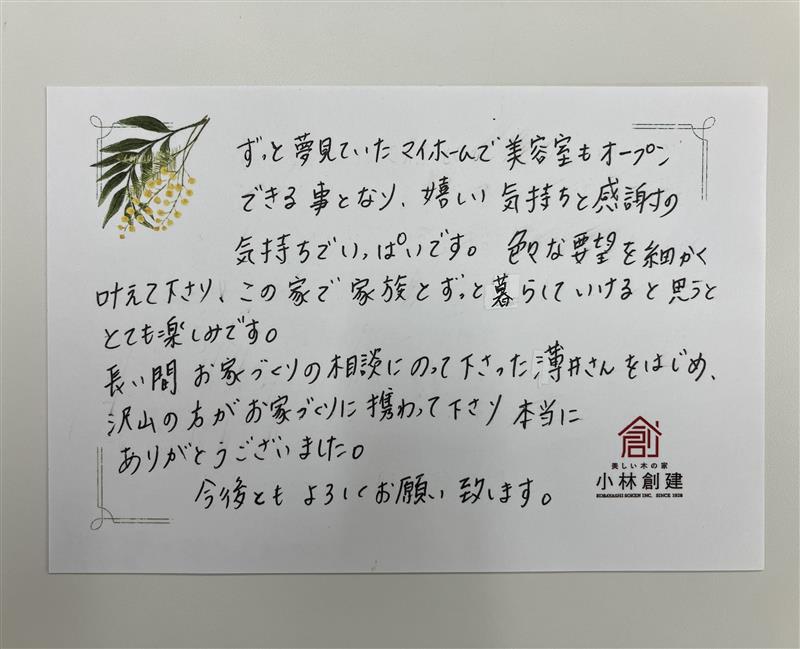 ずっと夢見ていたマイホームで美容室もオープン
できる事となり、嬉しい気持ちと感謝の
気持ちでいっぱいです。色々な要望を細かく
叶えて下さり、この家で家族とずっと暮らしていけると思うと
とても楽しみです。
長い間 お家づくりの相談にのって下さった薄井さんをはじめ、
沢山の方がお家づくりに携わって下さり 本当に
ありがとうございました。
今後とも よろしくお願い致します。
創
美しい木の家
小林創建
KOBAYASHI SOKEN INC. SINCE 1928